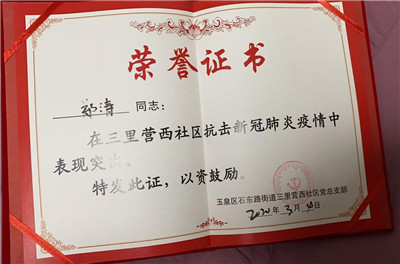 荣誉证书
同志：
在三里营西社区抗击新冠肺炎疫情中
表现突
特发此证，以资鼓励。
玉泉区石东路街道三里营西社区党总支部
2020年3月 日